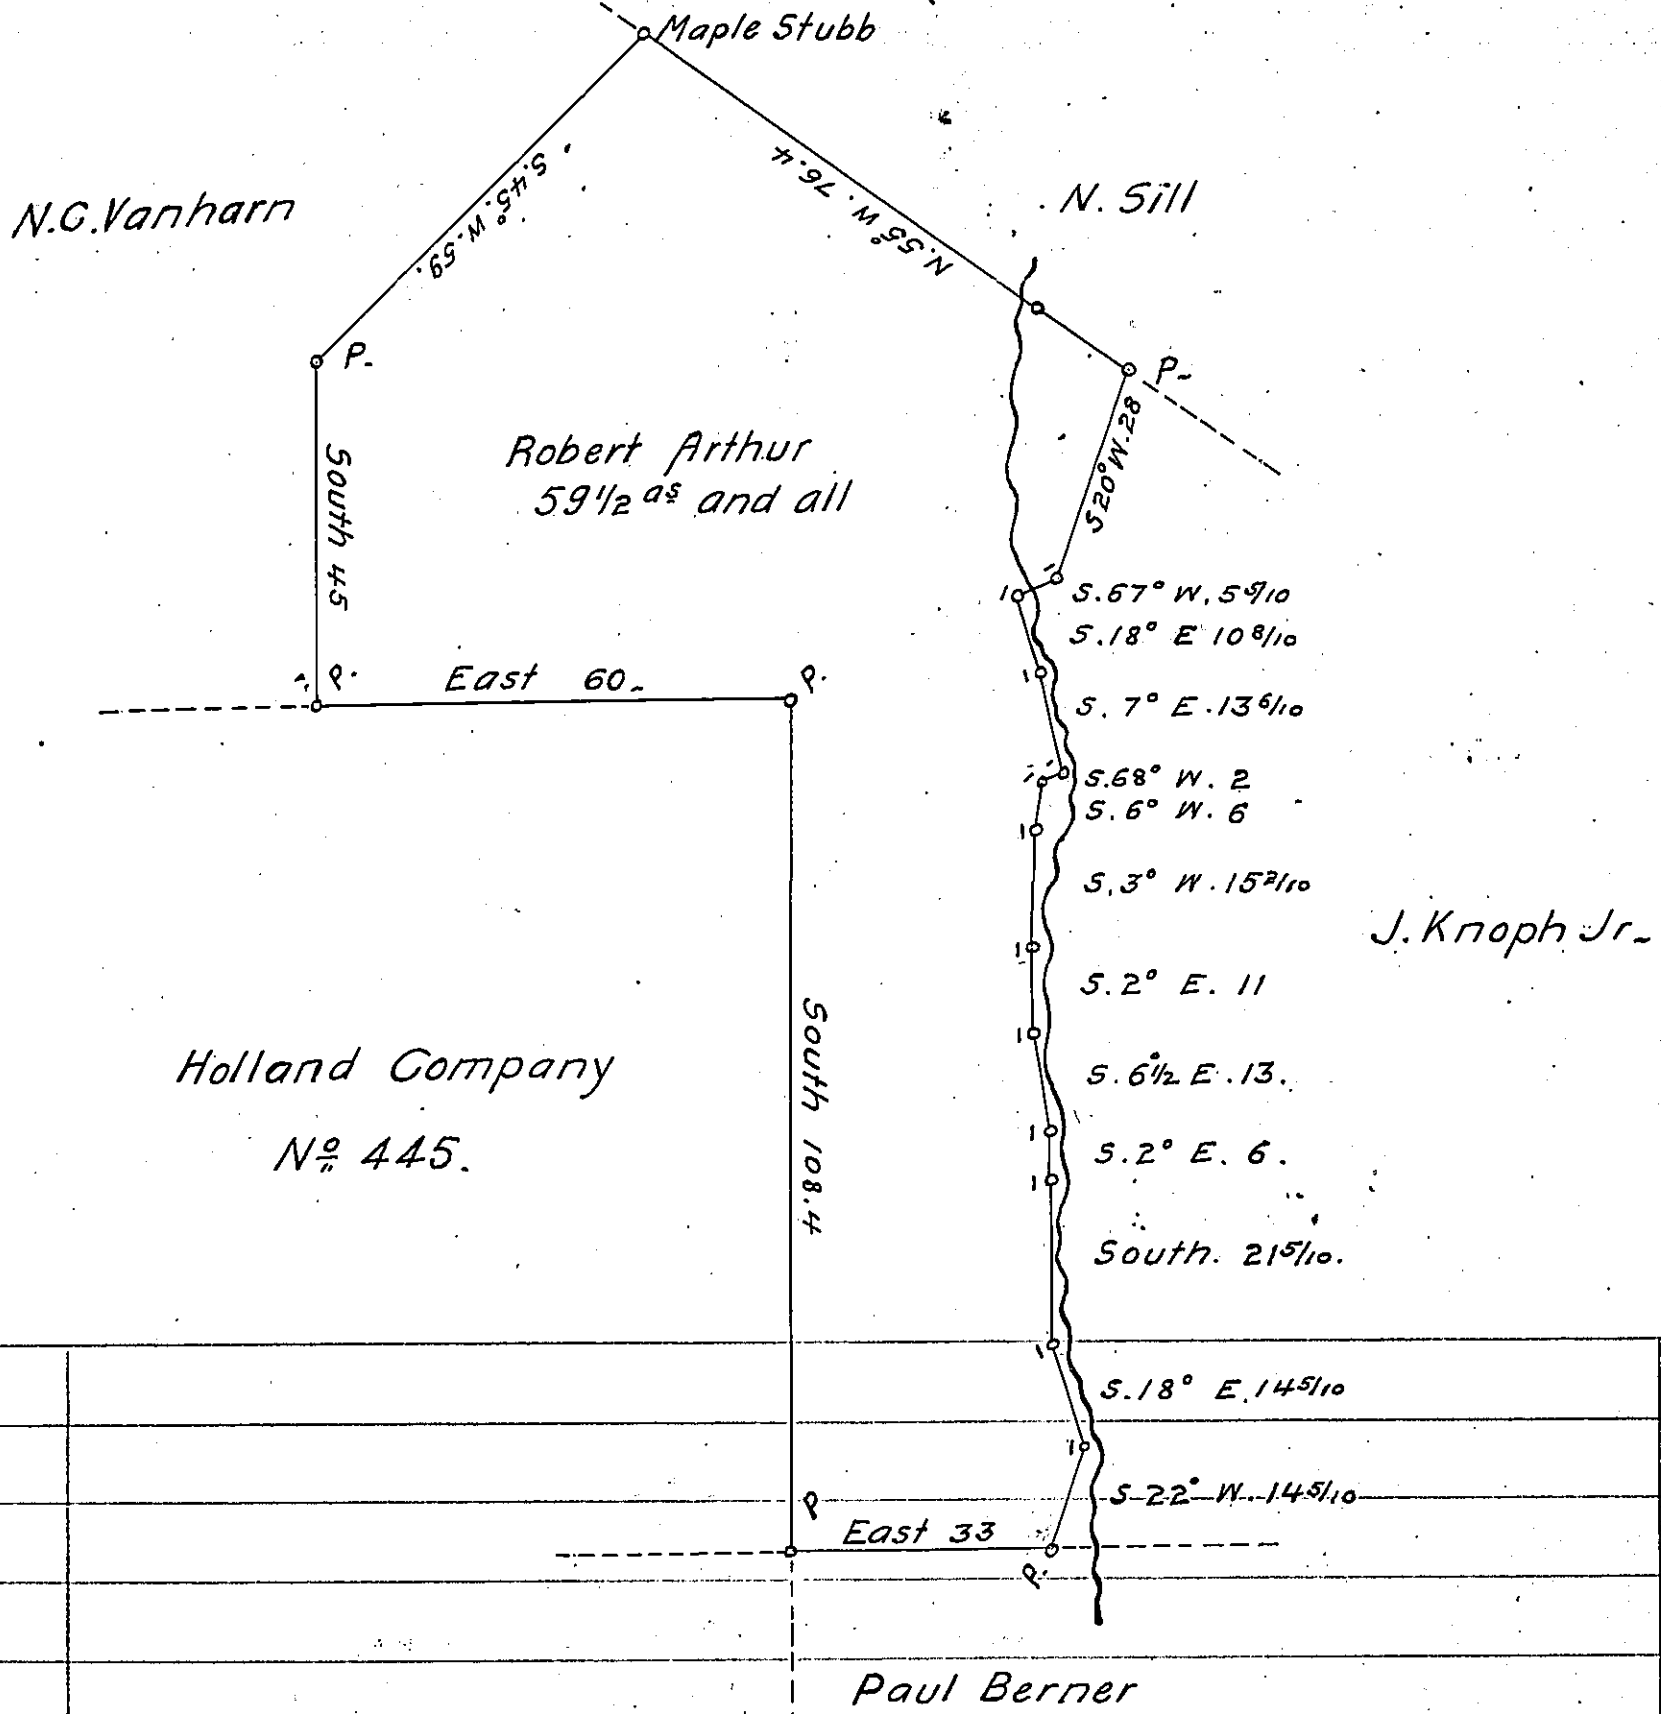 Maple Stubb
N.G. Vanharn
S.45° W. 59.
N.55° W. 76.4
N. Sill
P.
P-
South 45
Robert Arthur
59 1/2 as and all
S 20° W. 28
S. 67° W. 5 5/10
S. 18° E 10 8/10
P.
East 60-
P.
S. 7° E. 13 6/10
S. 68° W. 2
S. 6° W. 6
S. 3° W. 15 2/10
J. Knoph Jr-
S. 2° E. 11
South 108.4
Holland Company
No 445.
S. 6°1/2 E. 13.
S. 2° E. 6.
South. 21 5/10.
S. 18° E. 14 5/10
S 22° W. 14 5/10
P
East 33
P.
Paul Berner